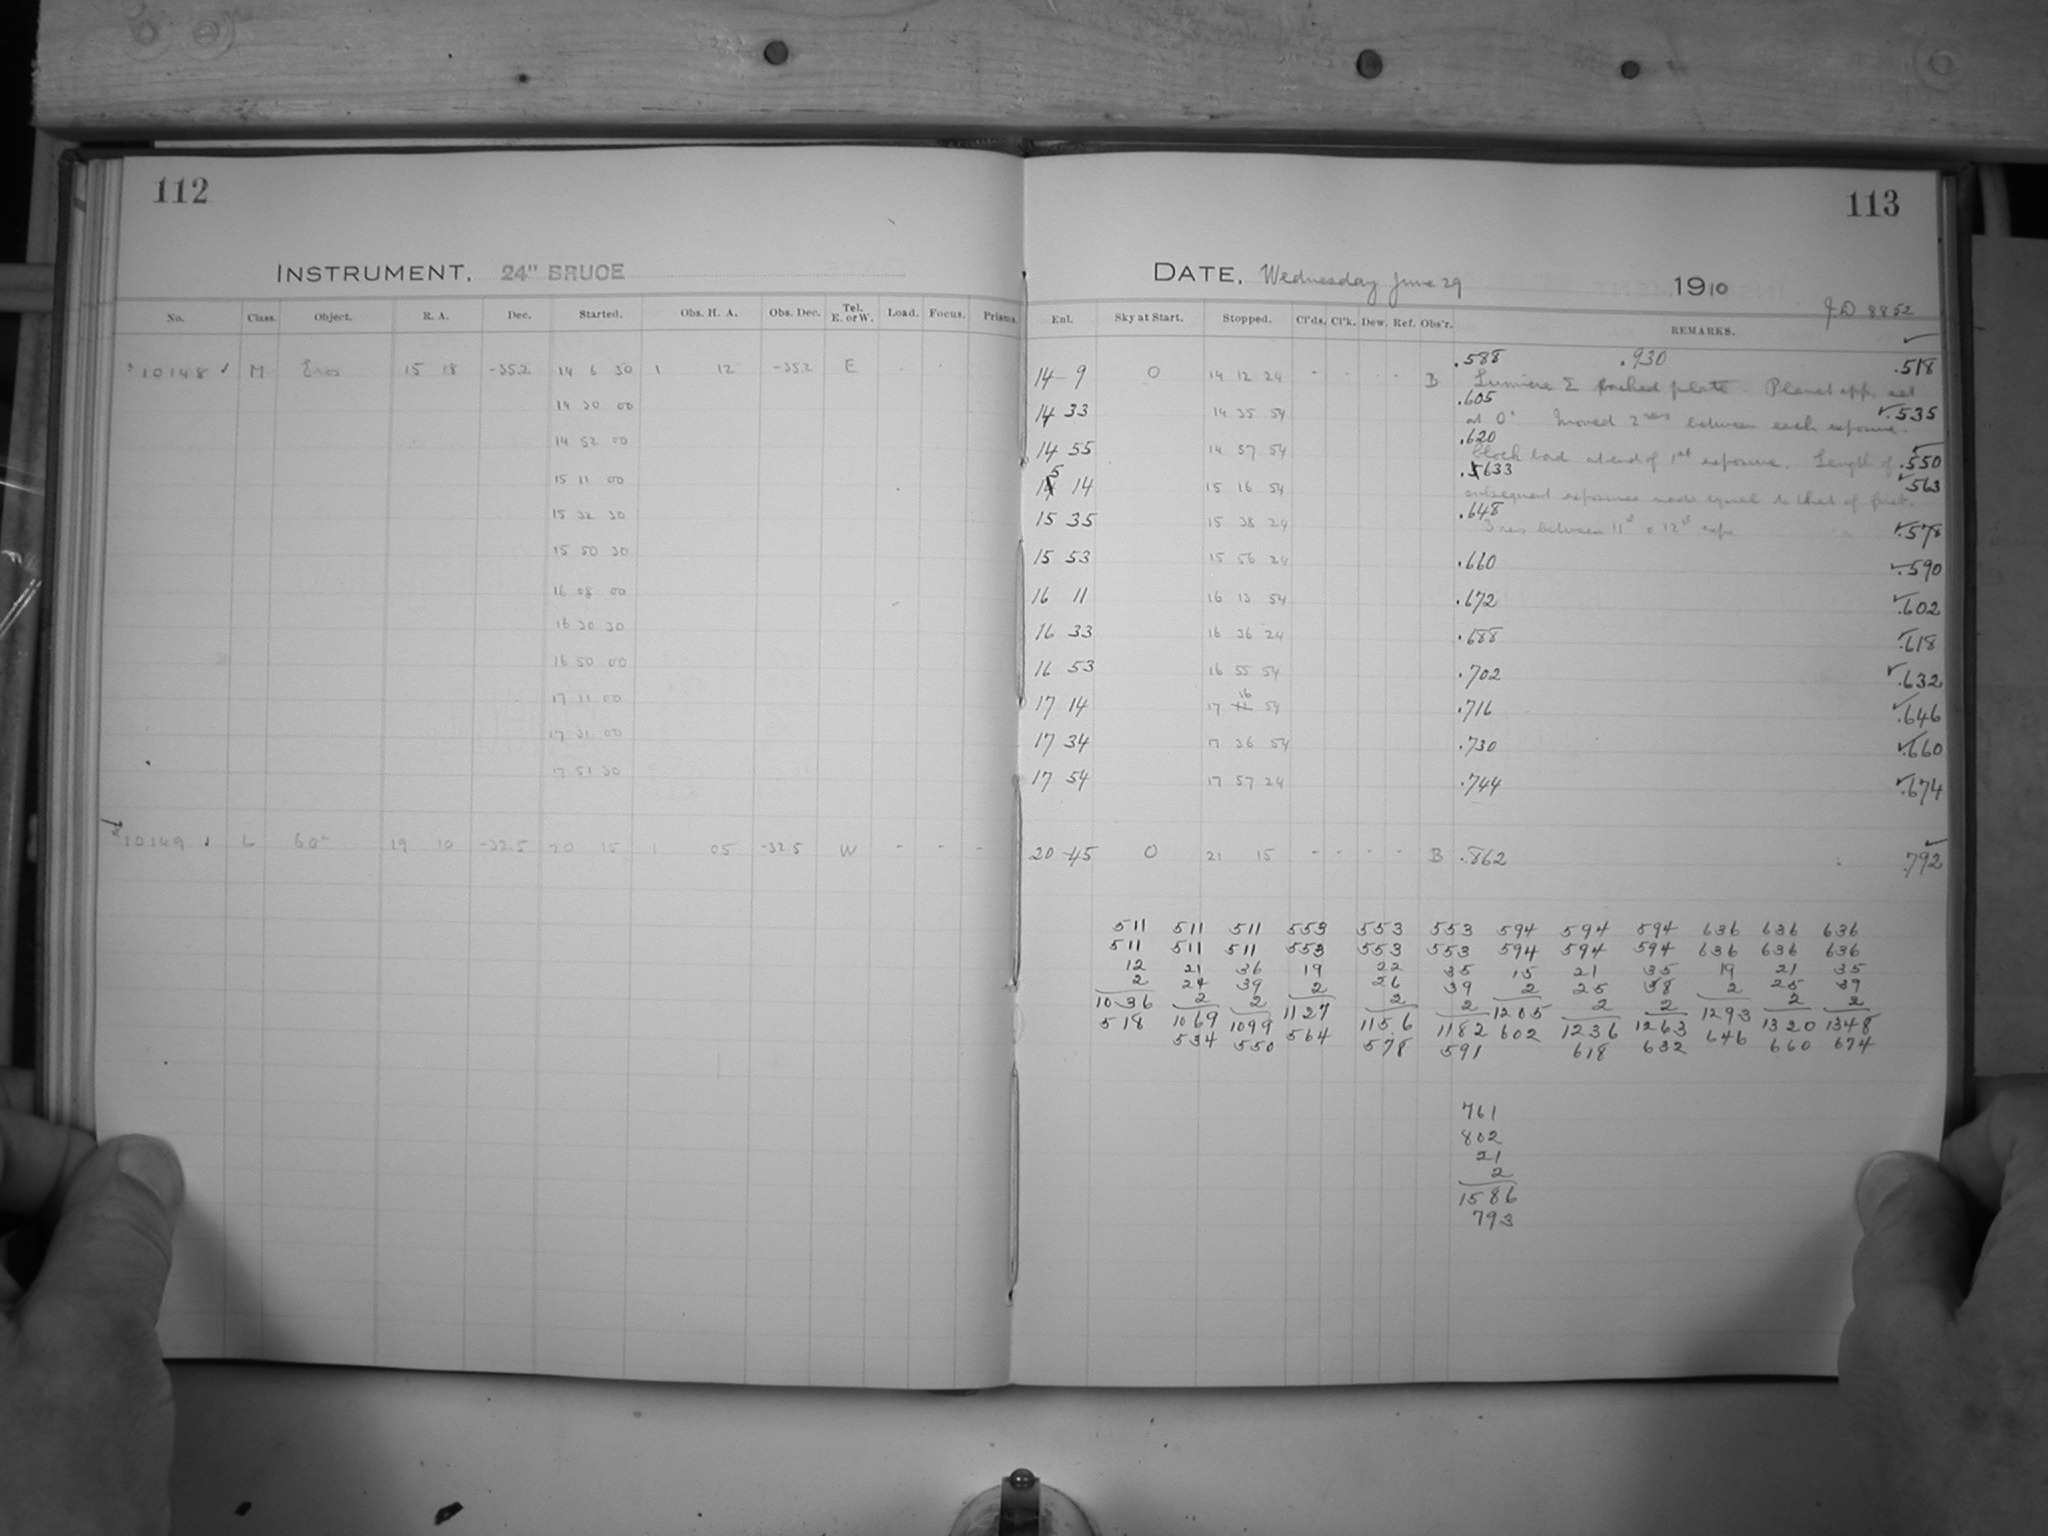 112
INSTRUMENT, 24" BRUCE
No. Class. Object. R. A. Dec. Started. Obs. H. A. Obs. Dec. Tel. E. or W. Load. Focus. Prisms.
10148 M Eros 15 18 -35.2 14 6 30 1 12 -35.2 E
14 30 00
14 52 00
15 11 00
15 32 30
15 50 30
16 08 00
16 30 30
16 50 00
17 11 00
17 31 00
17 51 30
10149 L 60m 19 10 -32.5 20 15 1 05 -32.5 W - - -
113
DATE, Wednesday June 29 1910
J.D 8852
Ent. Sky at Start. Stopped. Cl'ds. Cl'k. Dew. Ref. Obs'r. REMARKS.
.588 .930 .518
14 9 O 14 12 24 - - - - B Lumiere Σ backed plate. Planet app. set
.605
14 33 14 35 54 at 0". Moved 2 revs between each exposure. .535
.620
14 55 14 57 54 Clock bad at end of 1st exposure. Length of .550
.633 .563
15 14 15 16 54 subsequent exposures made equal to that of first.
.648
15 35 15 38 24 3 revs between 11th & 12th exps. .578
15 53 15 56 24 .660 .590
16 11 16 13 54 .672 .602
16 33 16 36 24 .688 .618
16 53 16 55 54 .702 .632
17 14 17 16 54 .716 .646
17 34 17 36 54 .730 .660
17 54 17 57 24 .744 .674
20 45 O 21 15 - - - - B .862 .792
511 511 511 553 553 553 594 594 594 636 636 636
511 511 511 553 553 553 594 594 594 636 636 636
12 21 36 19 22 35 15 21 35 19 21 35
2 24 39 2 26 39 2 25 38 2 25 39
1036 2 2 1127 2 2 1205 2 2 1293 2 2
518 1069 1099 564 1156 1182 602 1236 1263 646 1320 1348
534 550 578 591 618 632 660 674
761
802
21
2
1586
793